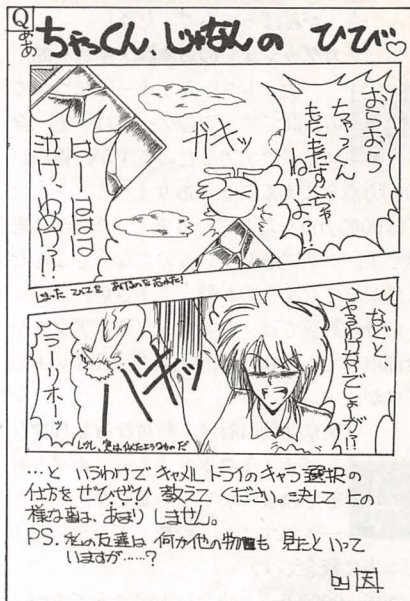 Q
ああ
ちゃっくん、じゃなんの ひび♡
おらおら
ちゃっくん
もたもたすんじゃ
ねーよ!!
ガキッ
はーははは
泣け!わめけっ!!
しまった
などと、
やるわけないでしょーが!?
バキッ
ラーリホー
しかし、実は似たようなものだ
…と いうわけでキャメルトライのキャラ選択の
仕方をぜひぜひ 教えて ください。決して上の
様な事は、あまり しません。
PS. 私の友達は 何か他の物も 見たといって
いますが……?
by 因